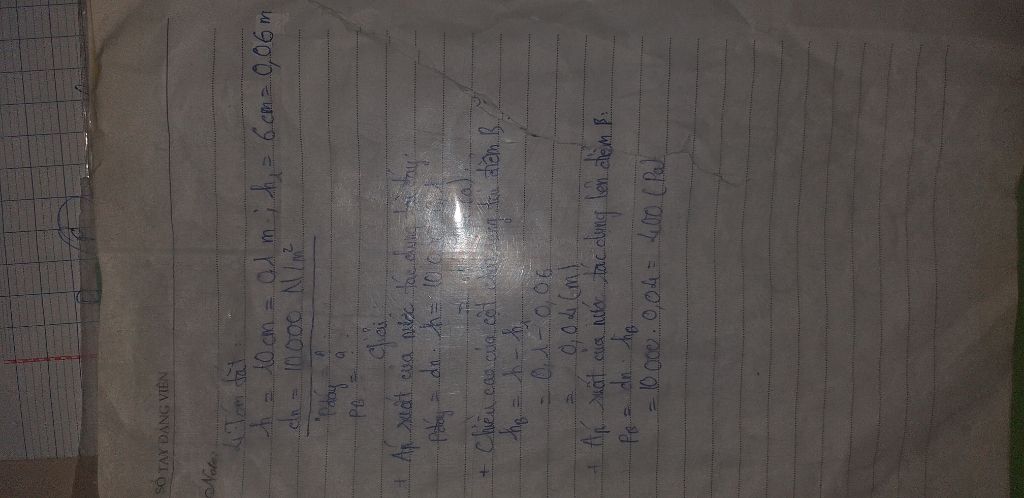 SỔ TAY ĐẢNG VIÊN
Note:
4) Tóm tắt:
h = 10 cm = 0,1 m ; h1 = 6 cm = 0,06 m
dn = 10 000 N/m²
Pđáy = ?
PB = ?
Giải
+ Áp suất của nước tác dụng lên đáy:
Pđáy = dn . h = 10 0
+ Chiều cao của cột chất lỏng tại điểm B.
hB = h - h1
= 0,1 - 0,06
= 0,04 (m)
+ Áp suất của nước tác dụng lên điểm B:
PB = dn . hB
= 10 000 . 0,04 = 400 (Pa)